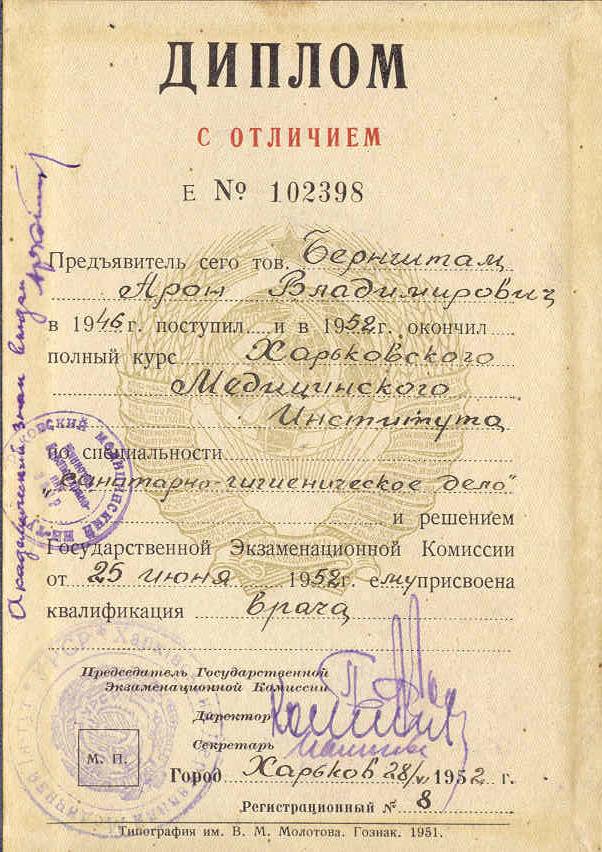 ДИПЛОМ
С ОТЛИЧИЕМ
Е № 102398
Предъявитель сего тов. Бернштам
Арон Владимирович
в 1946 г. поступил и в 1952 г. окончил
полный курс Харьковского
Медицинского
Института
по специальности
"Санитарно-гигиеническое дело"
и решением
Государственной Экзаменационной Комиссии
от 25 июня 1952 г. ему присвоена
квалификация врача
Председатель Государственной
Экзаменационной Комиссии
Директор
Секретарь
М. П.
Город Харьков 28/VI 1952 г.
Регистрационный № 8
Типография им. В. М. Молотова. Гознак. 1951.
Академический знак выдан